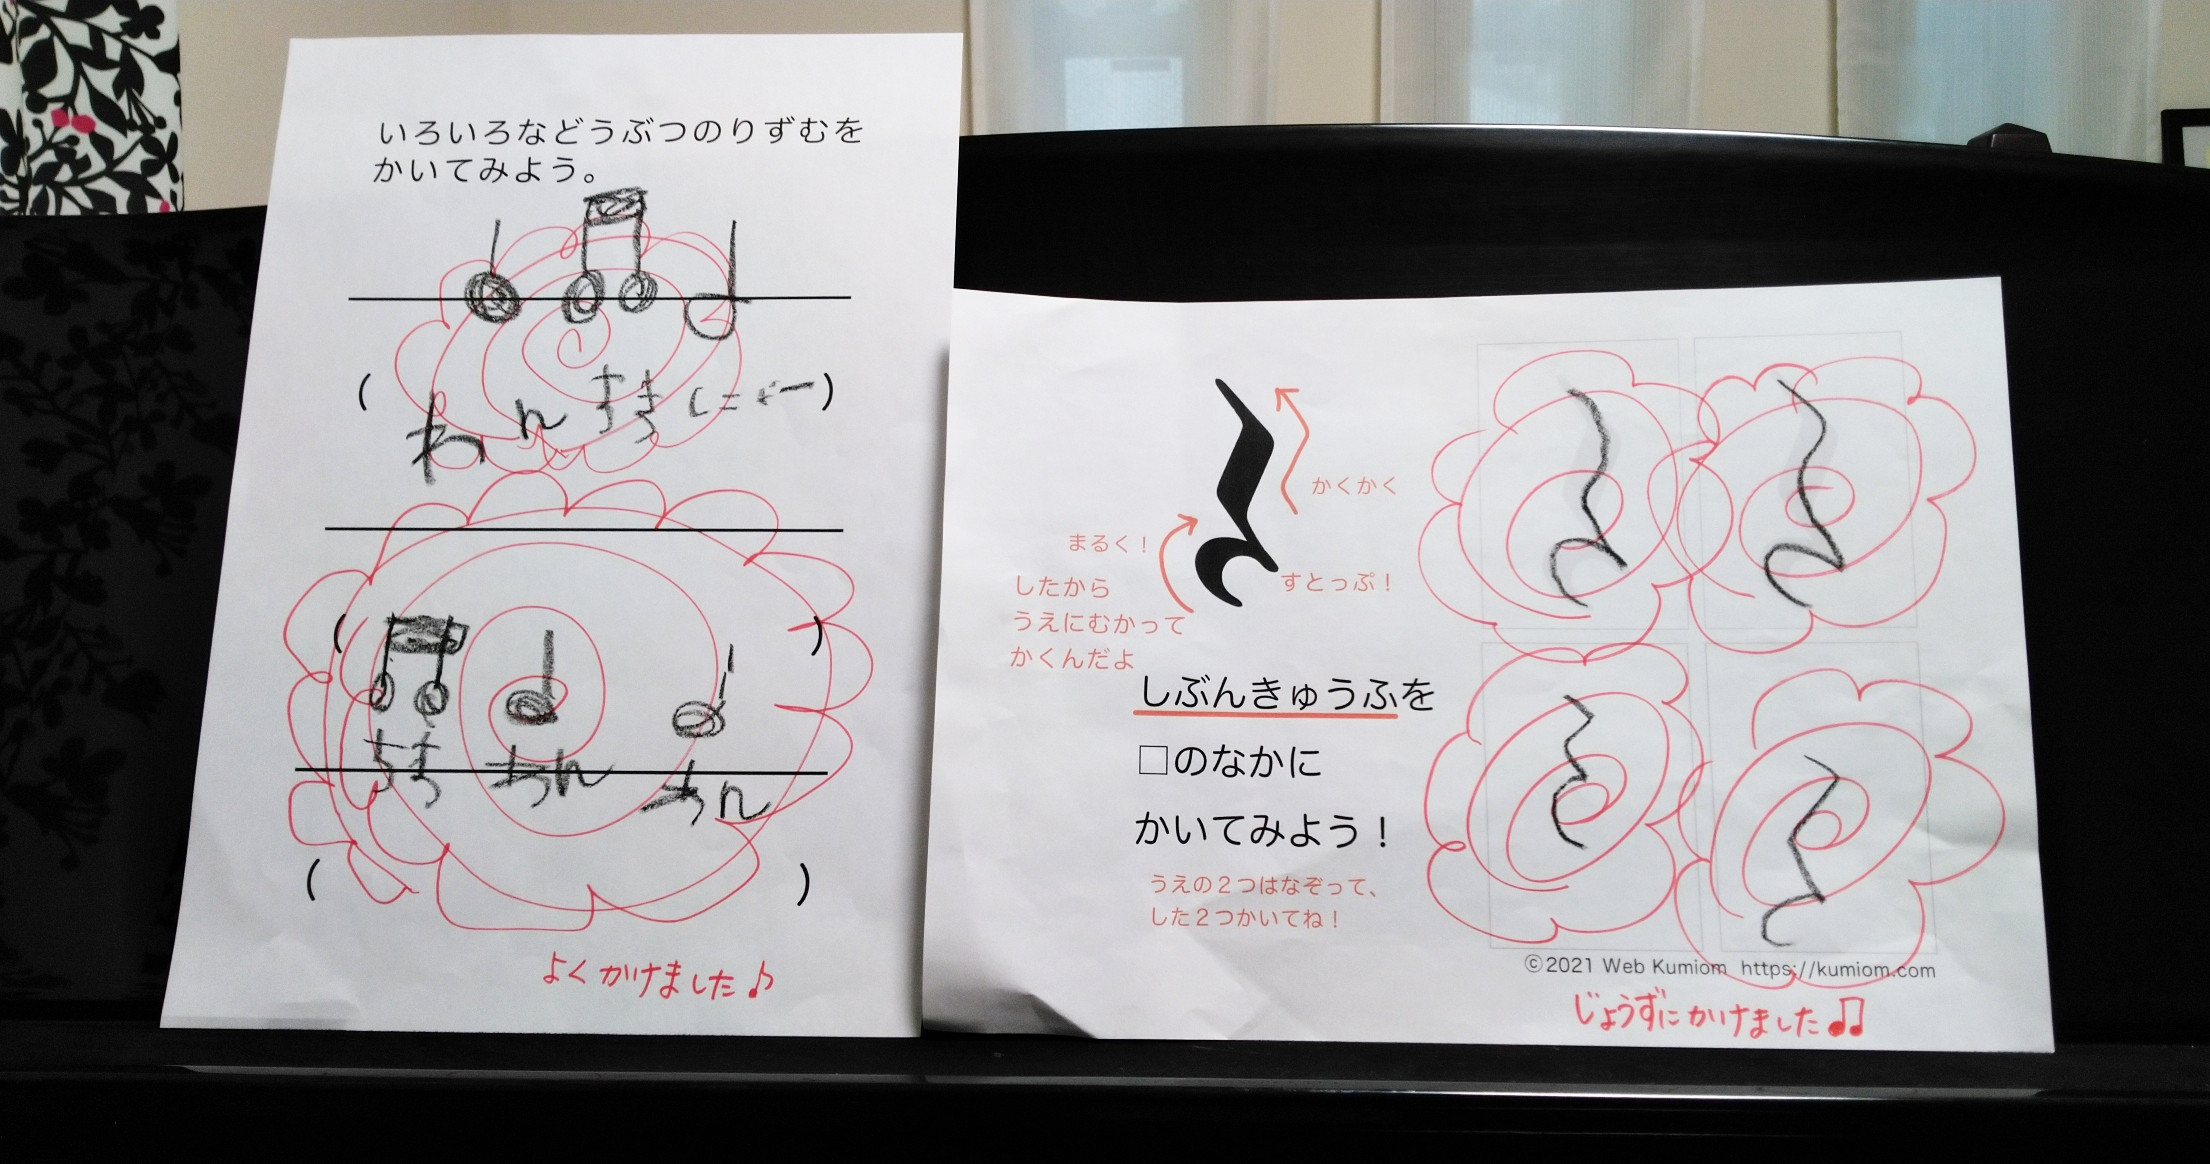 いろいろなどうぶつのりずむを
かいてみよう。
わん ちち
(
)
(
)
ちち わん わん
(
)
よくかけました♪
かくかく
まるく！
すとっぷ！
したから
うえにむかって
かくんだよ
しぶんきゅうふを
□のなかに
かいてみよう！
うえの２つはなぞって、
した２つかいてね！
©2021 Web Kumiom https://kumiom.com
じょうずにかけました♫